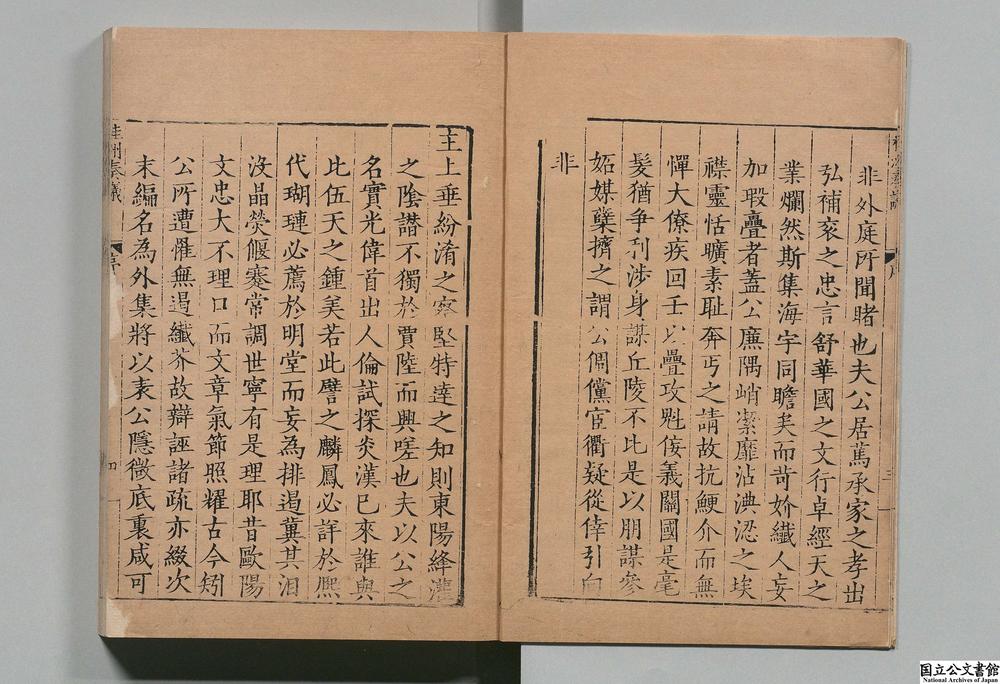 非外庭所聞睹也夫公居蔫承家之孝出
弘補衮之忠言舒華國之文行卓經天之
業爛然斯集海宇同瞻矣而苛妎纖人妄
加瑕舋者蓋公廉隅峭潔靡沾淟涊之埃
襟靈恬曠素耻奔丐之請故抗鯁介而無
憚大僚疾回壬以疊攻魁佞義關國是毫
髮猶争利涉身謀丘陵不比是以朋謀參
妬媒糵擠之謂公倜儻宦衢疑從倖引向
非
主上垂紛淆之察堅特達之知則東陽絳灌
之陰譖不獨於賈陸而興嗟也夫以公之
名實光偉首出人倫試探炎漢已來誰與
比伍天之鍾美若此譬之麟鳳必詳於熈
代瑚璉必薦於明堂而妄為排遏冀其汩
沒晶熒偃蹇常調世寧有是理耶昔歐陽
文忠大不理口而文章氣節照耀古今矧
公所遭罹無過纖芥故辯誣諸疏亦綴次
末編名為外集將以表公隱微底裏咸可
桂洲奏議
序
三
四
国立公文書館
National Archives of Japan